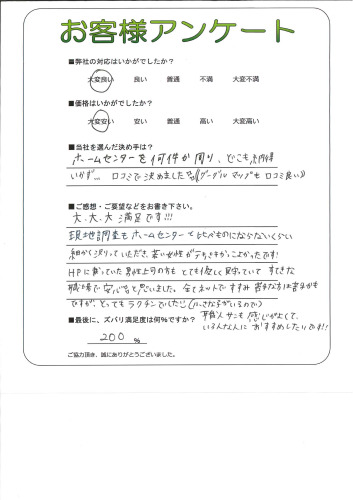 お客様アンケート
■弊社の対応はいかがでしたか？
大変良い 良い 普通 不満 大変不満
■価格はいかがでしたか？
大変安い 安い 普通 高い 大変高い
■当社を選んだ決め手は？
ホームセンターを何件か周り、どこも納得
いかず… 口コミで決めました（グーグルマップも口コミ良い）
■ご感想・ご要望などをお書き下さい。
大、大、大満足です!!!
現地調査もホームセンターと比べものにならないくらい
細かく測っていただき、若い女性がテキパキかっこよかったです!
HPに載っていた男性上司の方も とても優しく見守っていて すてきな
職場で安心だと思いました。全てネットですすみ 苦手な方は苦手かも
ですが、とってもラクチンでした（小さな子がいるので）
職人サンも感じがよくて、
いろんな人におすすめしたいです!!
■最後に、ズバリ満足度は何%ですか？
200 %
ご協力頂き、誠にありがとうございました。